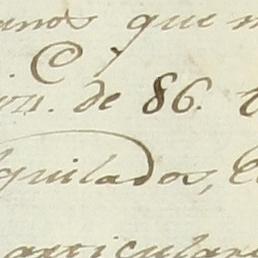 anos que
de 86.
quilados,
articular